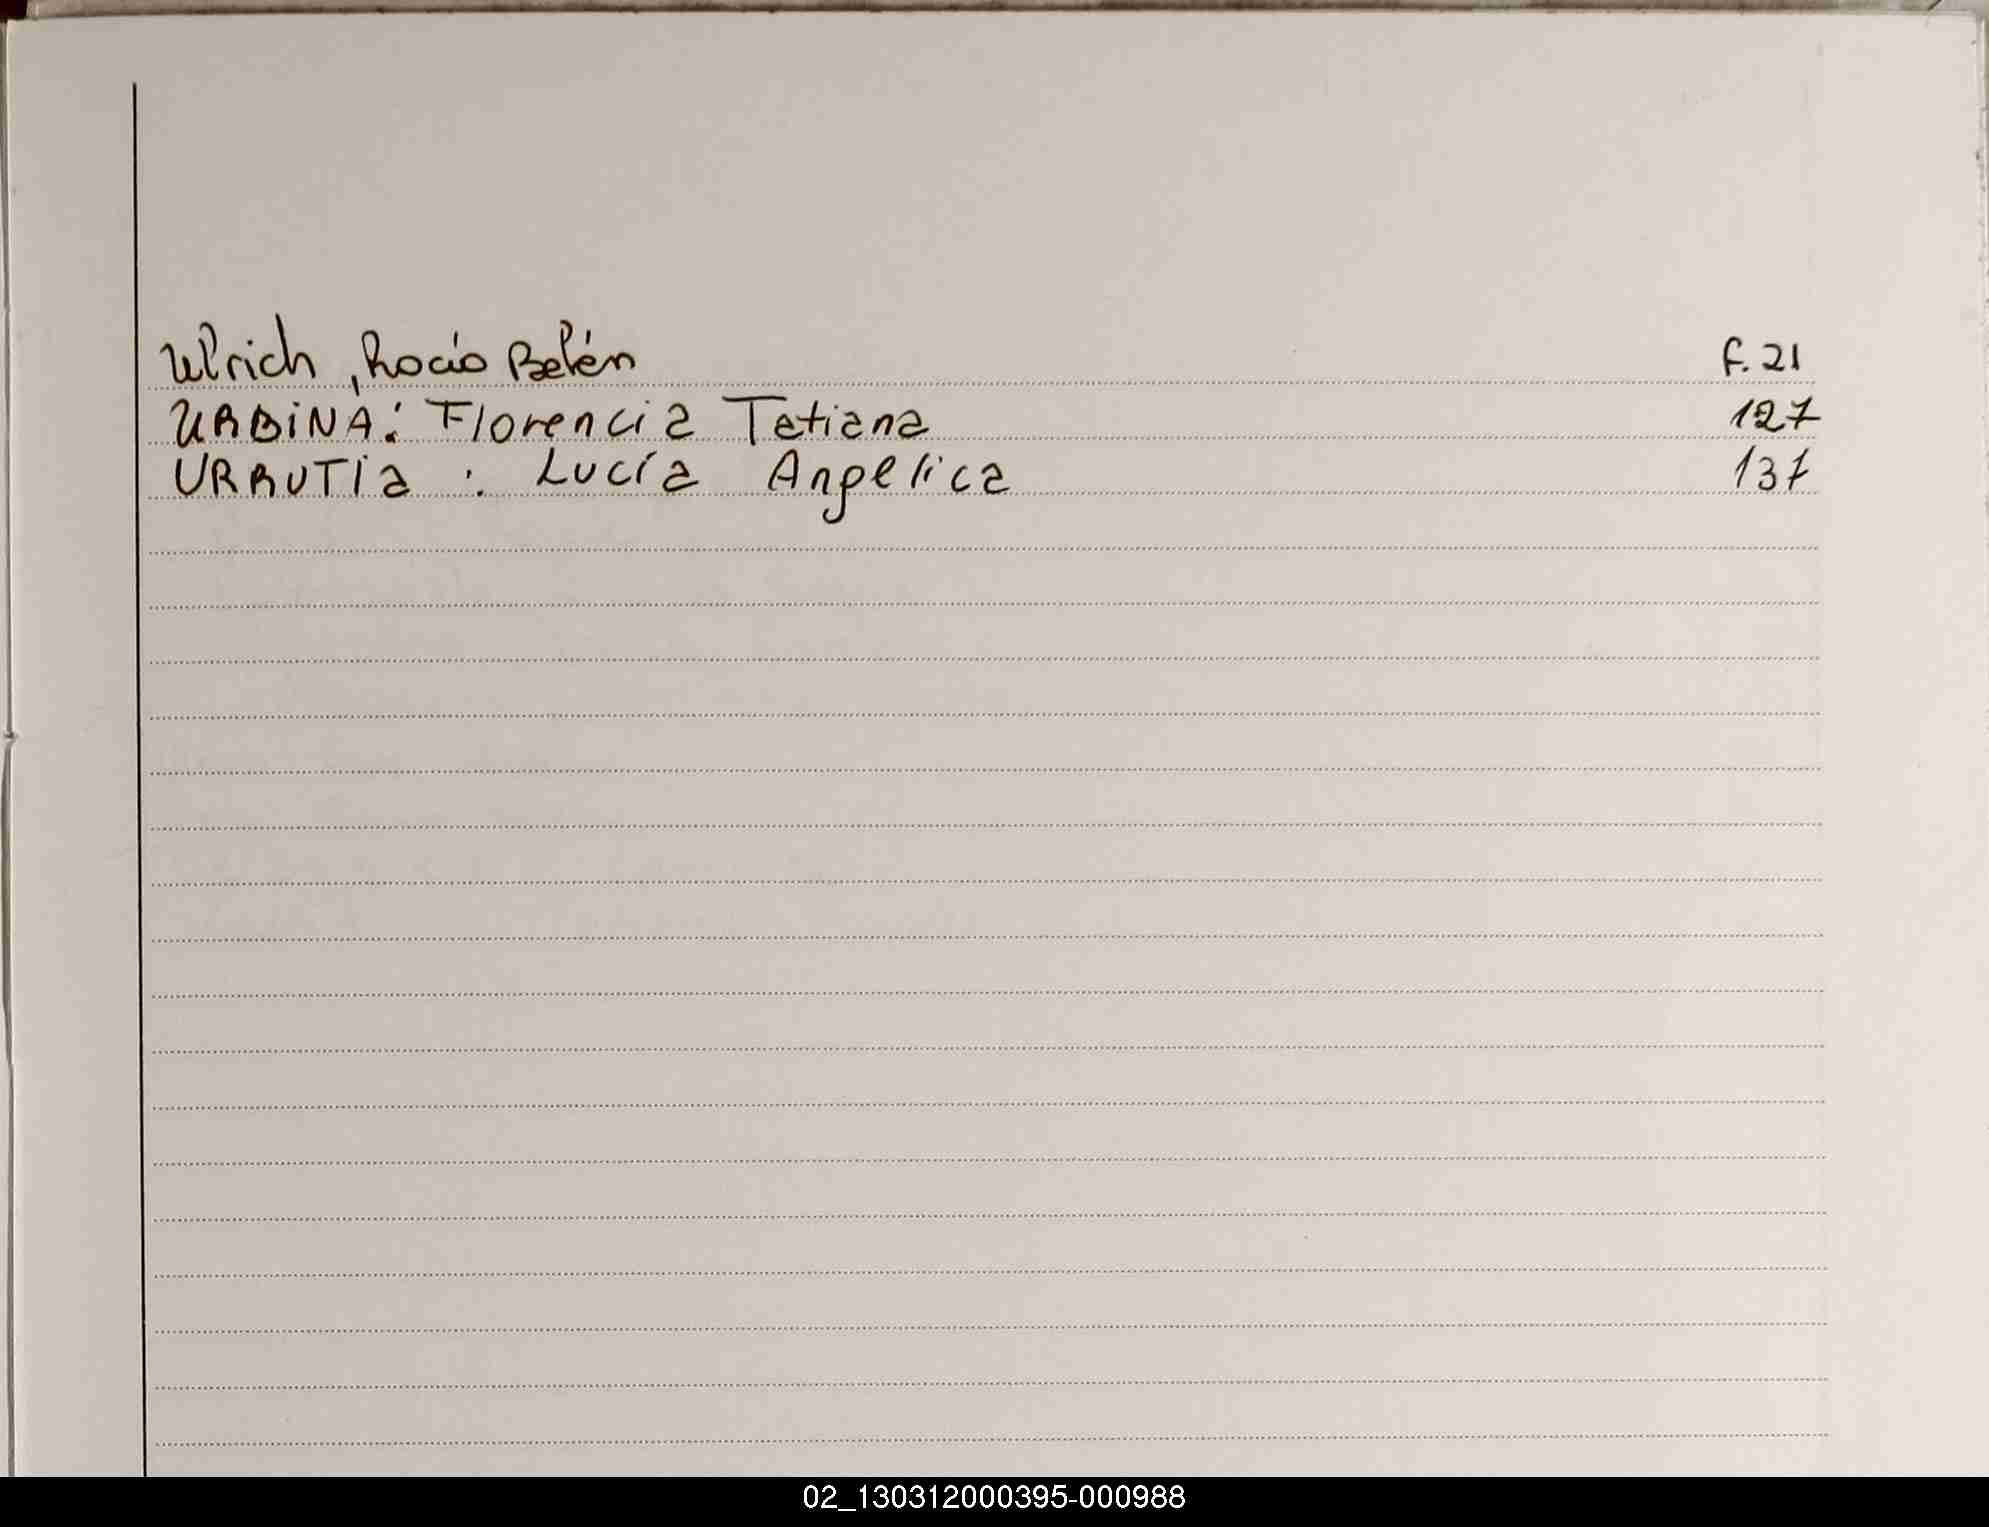 Ulrich, Rocío Belén f. 21
URBINA: Florencia Tatiana 127
URRUTIA: Lucía Angelica 137
02_130312000395-000988